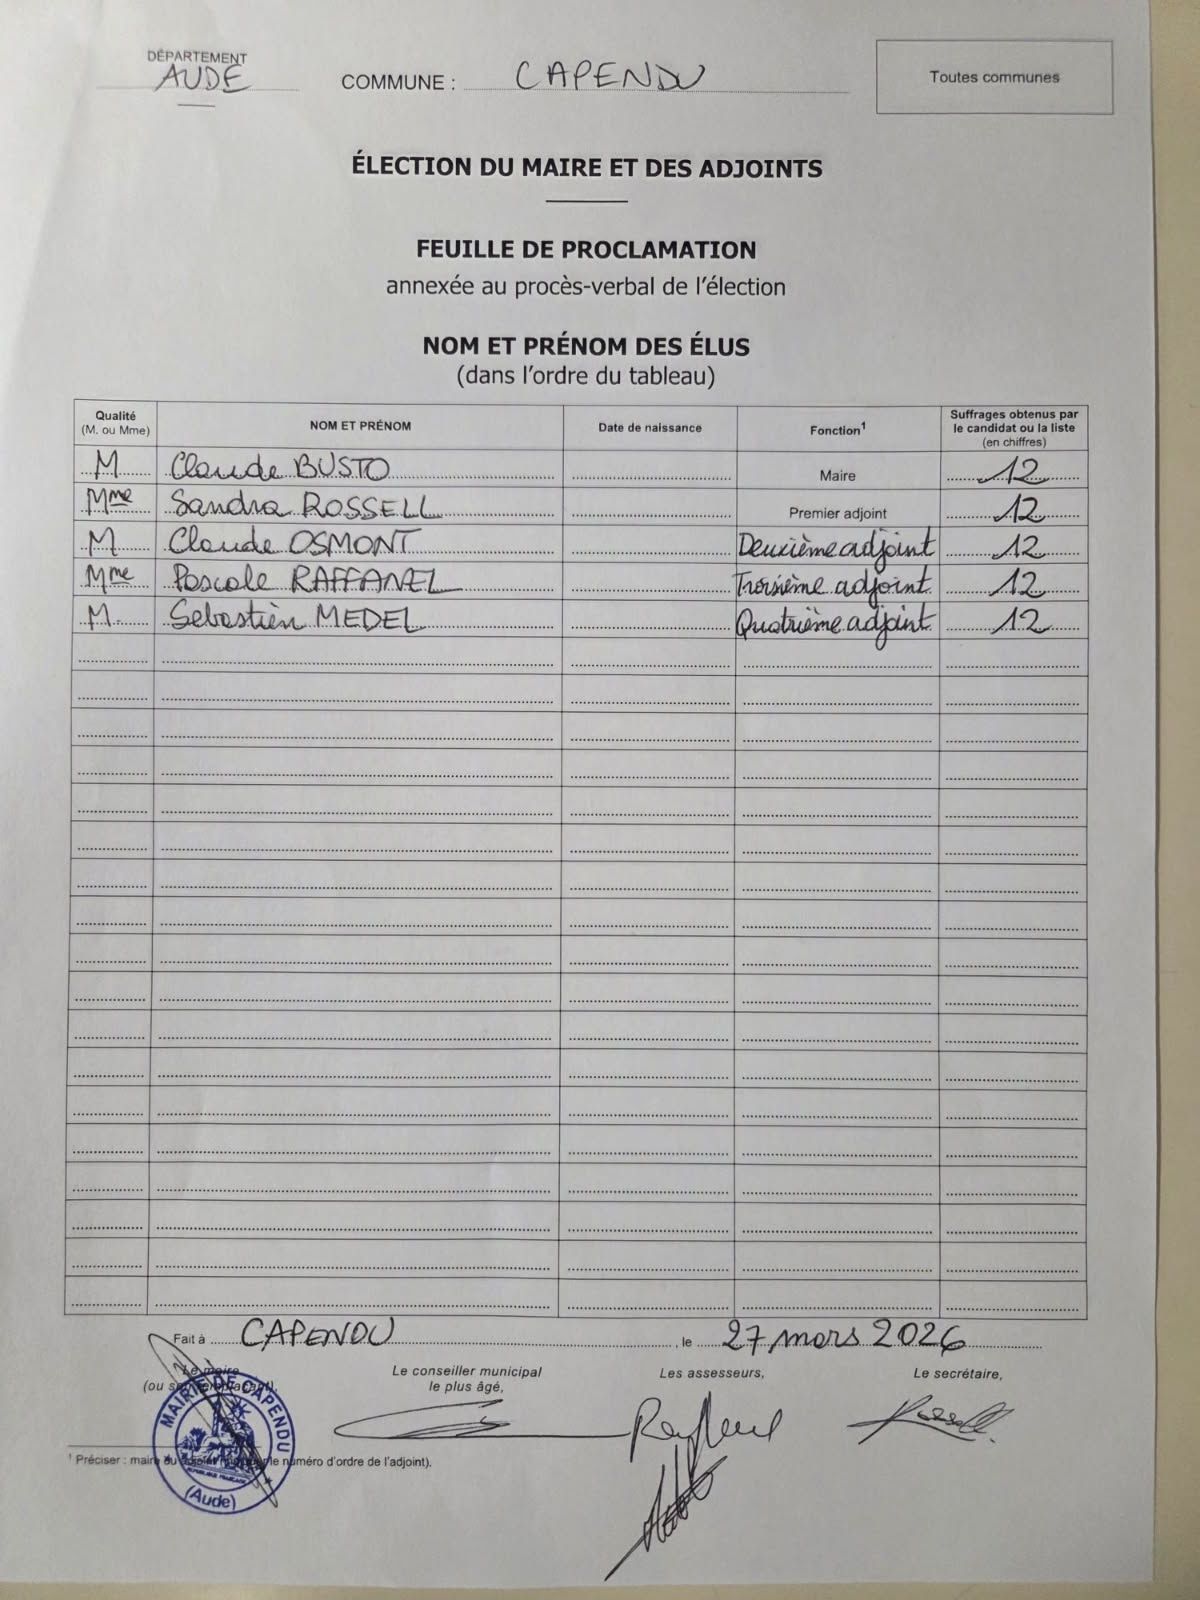 DÉPARTEMENT
AUDE
COMMUNE : CAPENDU
Toutes communes
ÉLECTION DU MAIRE ET DES ADJOINTS
FEUILLE DE PROCLAMATION
annexée au procès-verbal de l'élection
NOM ET PRÉNOM DES ÉLUS
(dans l'ordre du tableau)
Qualité (M. ou Mme) NOM ET PRÉNOM Date de naissance Fonction¹ Suffrages obtenus par le candidat ou la liste (en chiffres)
M Claude BUSTO Maire 12
Mme Sandra ROSSELL Premier adjoint 12
M Claude OSMONT Deuxième adjoint 12
Mme Pascale RAFFANEL Troisième adjoint 12
M. Sébastièn MEDEL Quatrième adjoint 12
Fait à CAPENDU, le 27 mars 2026
Le maire (ou son remplaçant),
Le conseiller municipal le plus âgé,
Les assesseurs,
Le secrétaire,
MAIRIE DE CAPENDU
RÉPUBLIQUE FRANÇAISE
(Aude)
¹ Préciser : maire ou adjoint le numéro d'ordre de l'adjoint).